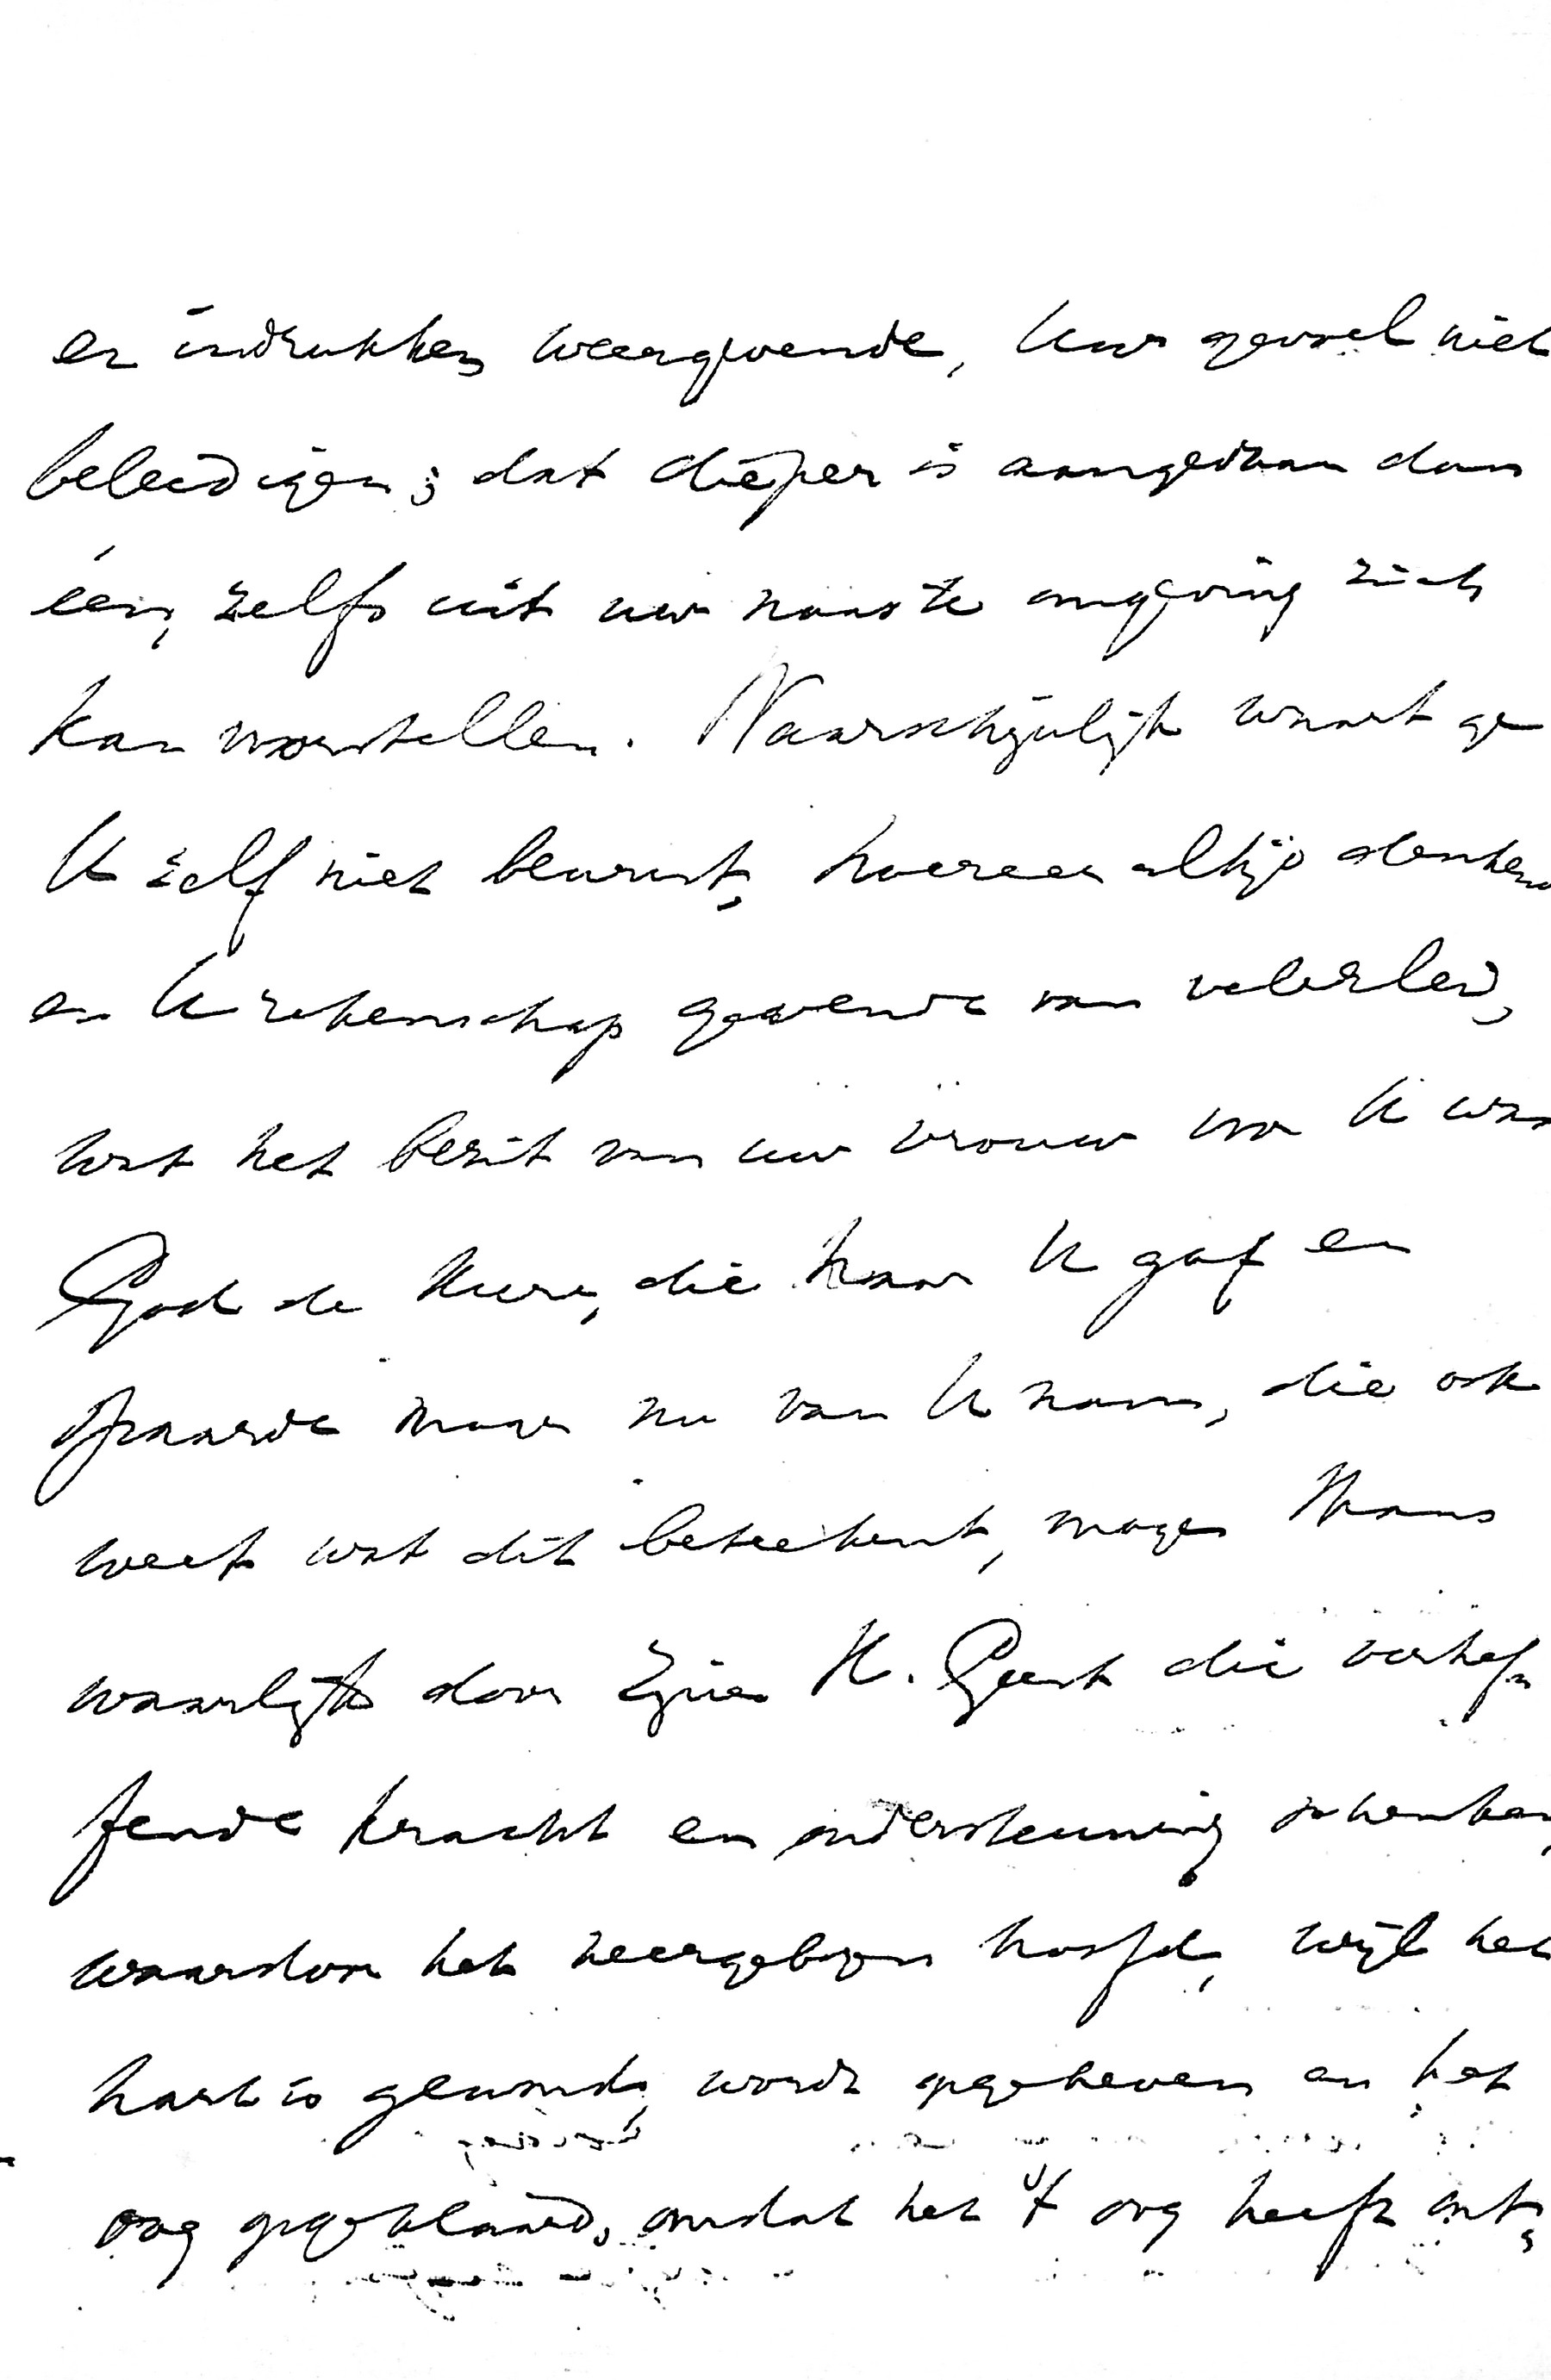 en indrukken weergevende, Uw gevoel niet
beleedigen; dat dieper is aangedaan dan
één, zelfs uit uw naaste omgeving zich
kan voorstellen. Waarschijnlijk waart ge
U zelf niet bewust, hoezeer altijd denkend
en U rekenschap gevende van velerlei,
wat het bezit van uw vrouw voor U was
God de Heere, die haar U gaf en
spaarde maar nu van U nam, die ook
weet wat dit beteekent, moge Thans
waarlijk door Zijnen H. Geest die verhef-
fende kracht en ondersteuning schenken,
waardoor het neergebogen hoofd, wijl het
hart is gewond, wordt opgeheven en het
oog opgeklaard, omdat het 't oog heeft ont-